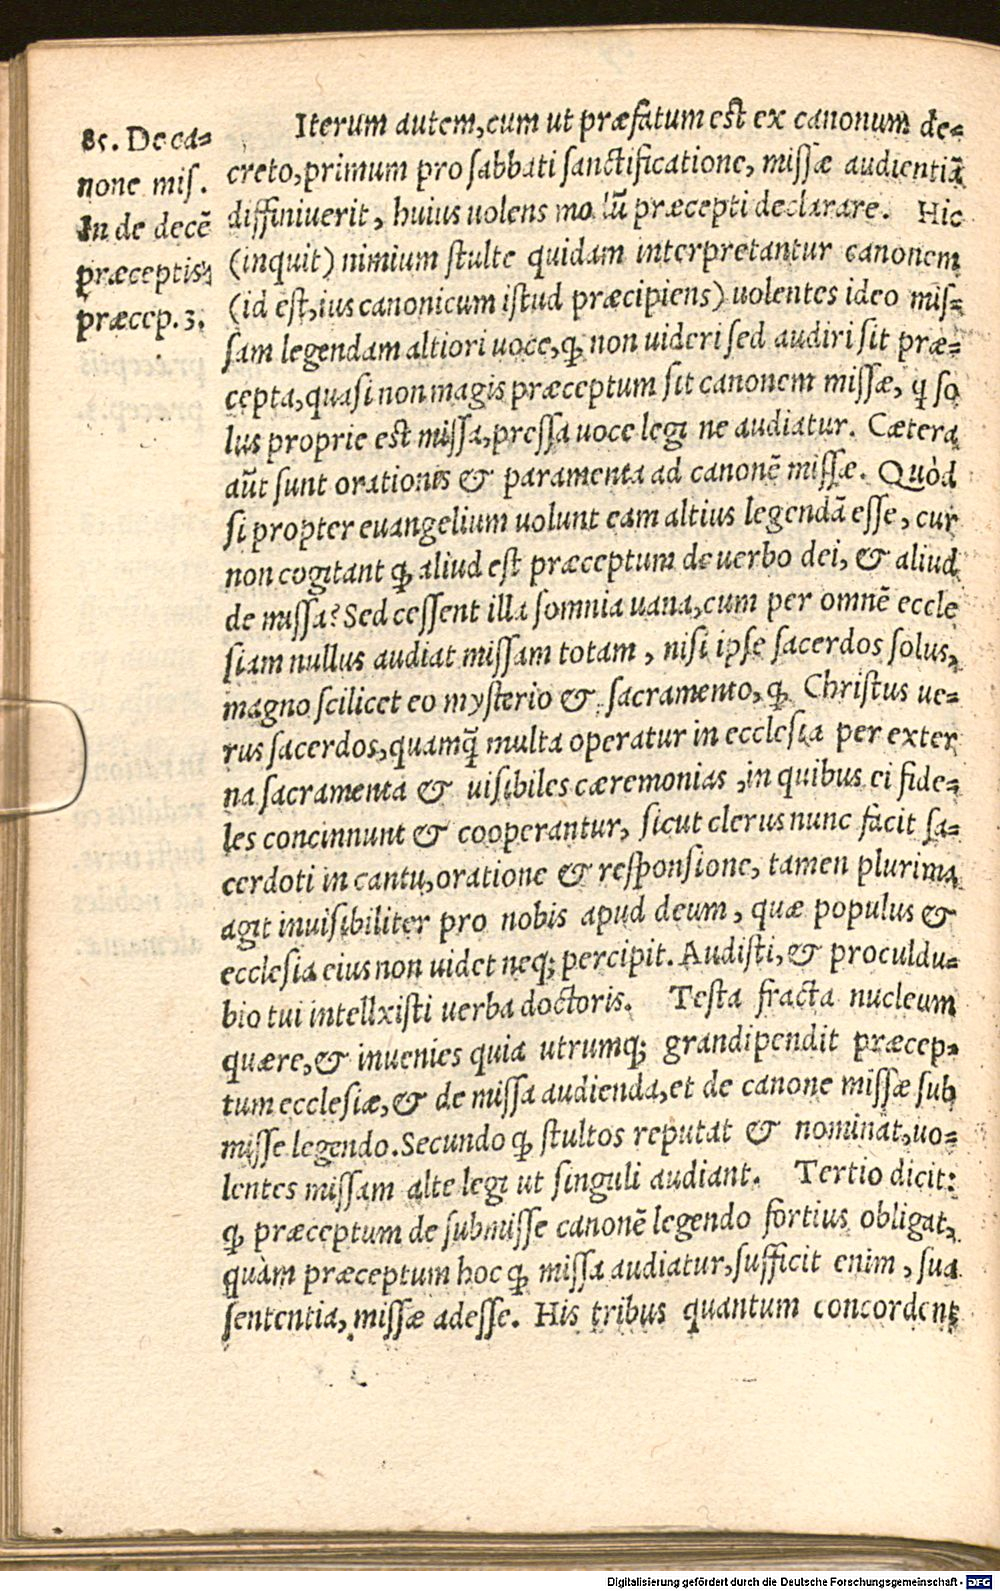 85. De ca-
none mis.
In de decē
præceptis
præcep. 3.
Iterum autem, cum ut præfatum est ex canonum de-
creto, primum pro sabbati sanctificatione, missæ audientiā
diffiniuerit, huius uolens modū præcepti declarare. Hic
(inquit) nimium stulte quidam interpretantur canonem
(id est, ius canonicum istud præcipiens) uolentes ideo mis-
sam legendam altiori uoce, ꝙ non uideri sed audiri sit præ-
cepta, quasi non magis præceptum sit canonem missæ, q̄ so
lus proprie est missa, pressa uoce legi ne audiatur. Cætera
aūt sunt orationis & paramenta ad canonē missæ. Quòd
si propter euangelium uolunt eam altius legendā esse, cur
non cogitant ꝙ aliud est præceptum de uerbo dei, & aliud
de missa? Sed cessent illa somnia uana, cum per omnē eccle
siam nullus audiat missam totam, nisi ipse sacerdos solus,
magno scilicet eo mysterio & sacramento, ꝙ Christus ue-
rus sacerdos, quamq̄ multa operatur in ecclesia per exter
na sacramenta & uisibiles cæremonias, in quibus ei fide-
les concinnunt & cooperantur, sicut clerus nunc facit sa-
cerdoti in cantu, oratione & responsione, tamen plurima
agit inuisibiliter pro nobis apud deum, quæ populus &
ecclesia eius non uidet neq; percipit. Audisti, & proculdu-
bio tui intellxisti uerba doctoris. Testa fracta nucleum
quære, & inuenies quia utrumq; grandipendit præcep-
tum ecclesiæ, & de missa audienda, et de canone missæ sub
misse legendo. Secundo ꝙ stultos reputat & nominat, uo-
lentes missam alte legi ut singuli audiant. Tertio dicit:
ꝙ præceptum de submisse canonē legendo fortius obligat,
quàm præceptum hoc ꝙ missa audiatur, sufficit enim, sua
sententia, missæ adesse. His tribus quantum concordent
Digitalisierung gefördert durch die Deutsche Forschungsgemeinschaft - DFG